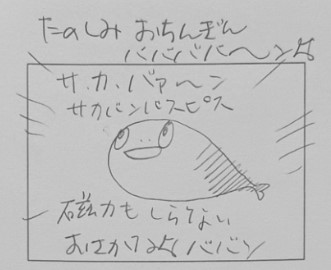 たのしみ おちんぎん
バババババーンち
サ.カ.バァーン
サカバンバスピス
磁力もしらない
おさかなババン